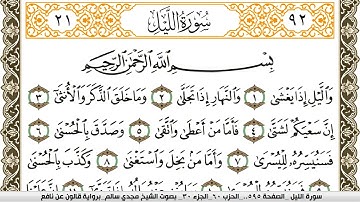 ٩٢ سُورَةُ اللَّيْلِ ٢١
بِسْمِ اللَّهِ الرَّحْمَٰنِ الرَّحِيمِ
وَالَّيْلِ إِذَا يَغْشَىٰ ١ وَالنَّهَارِ إِذَا تَجَلَّىٰ ٢ وَمَا خَلَقَ الذَّكَرَ وَالْأُنثَىٰ ٣
إِنَّ سَعْيَكُمْ لَشَتَّىٰ ٤ فَأَمَّا مَنْ أَعْطَىٰ وَاتَّقَىٰ ٥ وَصَدَّقَ بِالْحُسْنَىٰ ٦
فَسَنُيَسِّرُهُ لِلْيُسْرَىٰ ٧ وَأَمَّا مَن بَخِلَ وَاسْتَغْنَىٰ ٨ وَكَذَّبَ بِالْحُسْنَىٰ
سورة الليل _ الصفحة ٥٩٥ .. الحزب ٦٠ _ الجزء ٣٠ _ بصوت الشيخ مجدي سالم _ برواية قالون عن نافع